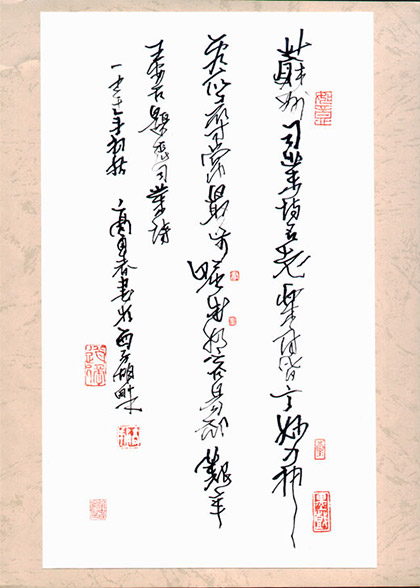 蘇州司業詩名老樂府皆言妙入神
看似尋常最奇崛成如容易却艱辛
王安石題張司業詩
年初秋 春書於西子湖畔